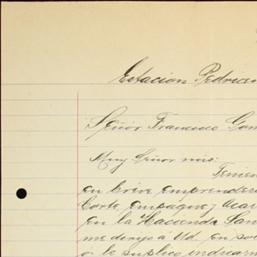 Estacion Pedrice
Señor Francisco Gon
Muy Señor mio:
Tenien
en breve emprender
Corte, empaque y acar
en la Hacienda San
me dirijo á Ud. en so